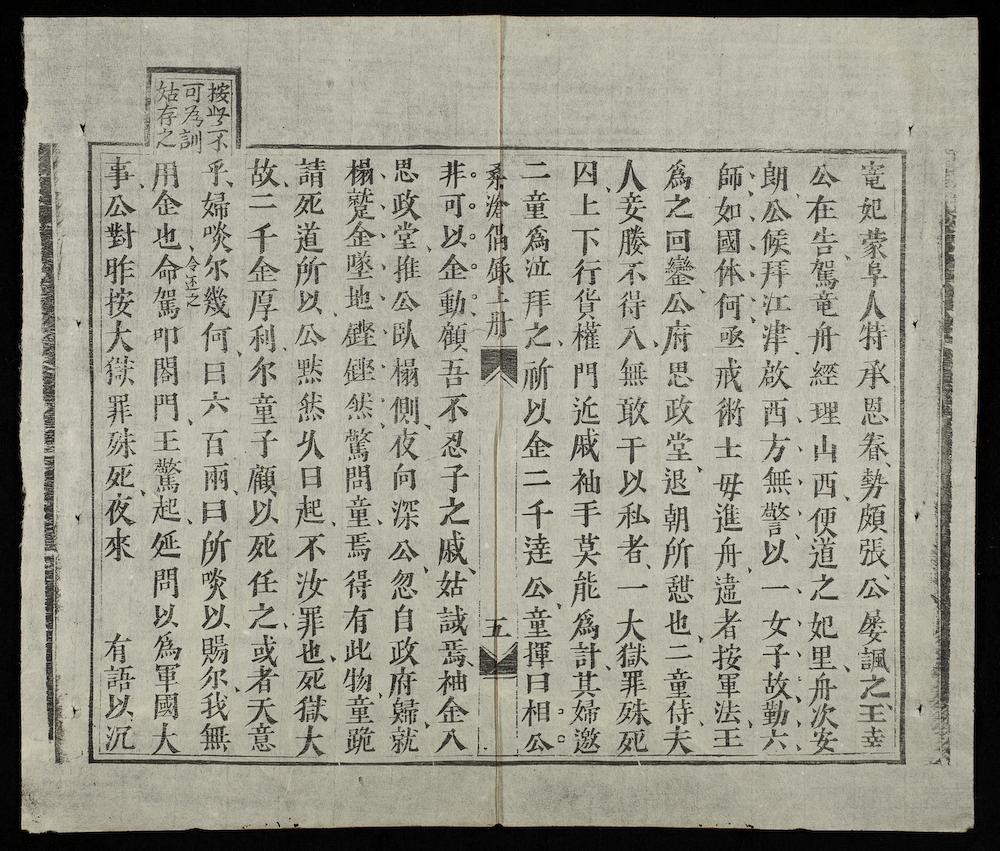 竜妃蒙阜人特承恩眷勢頗張公屡諷之王幸
公在告駕竜舟經理山西便道之妃里舟次安
朗公候拜江津啟西方無警以一女子故勤六
師如國体何亟戒術士毋進舟違者按軍法王
爲之回鑾公府思政堂退朝所憇也二童侍夫
人妾媵不得入無敢干以私者一大獄罪殊死
囚上下行貨權門近戚袖手莫能爲計其婦邀
二童爲泣拜之祈以金二千逹公童揮曰相公
桑滄偶錄上册
五
非可以金動顧吾不忍子之戚姑試焉袖金入
思政堂推公臥榻側夜向深公忽自政府歸就
榻蹵金墜地鏗鏗然驚問童焉得有此物童跪
請死道所以公黙然乆曰起不汝罪也死獄大
故二千金厚利尔童子顧以死任之或者天意
乎婦啖尔幾何曰六百兩曰所啖以賜尔我無
用金也命駕叩閤門王驚起延問以爲軍國大
令还之
事公對昨按大獄罪殊死夜來 有語以沉
按此不
可為訓
姑存之